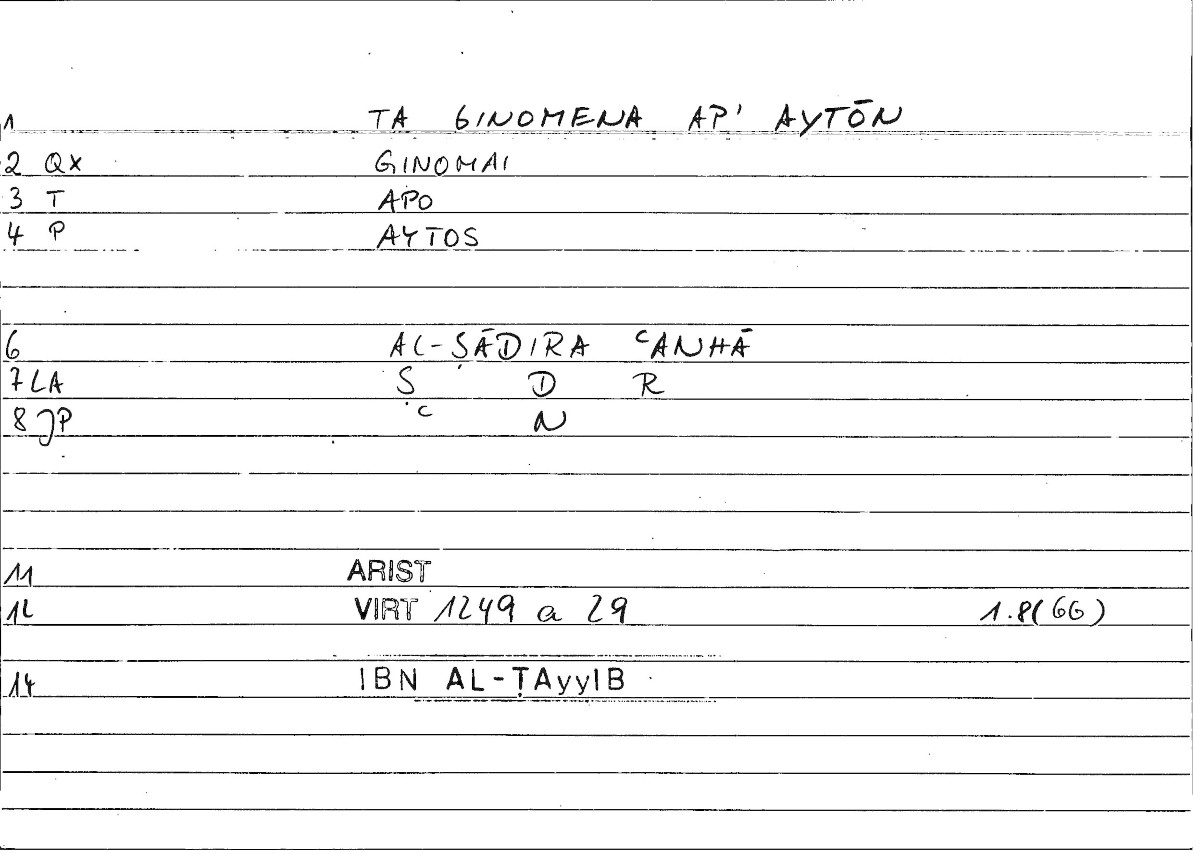 1 TA GINOMENA AP' AYTŌN
2 QX GINOMAI
3 T APO
4 P AYTOS
6 AL-ṢĀDIRA ʿANHĀ
7 LA Ṣ D R
8 JP ʿ N
11 ARIST
12 VIRT 1249 a 29 1.8(66)
14 IBN AL-ṬAyyIB